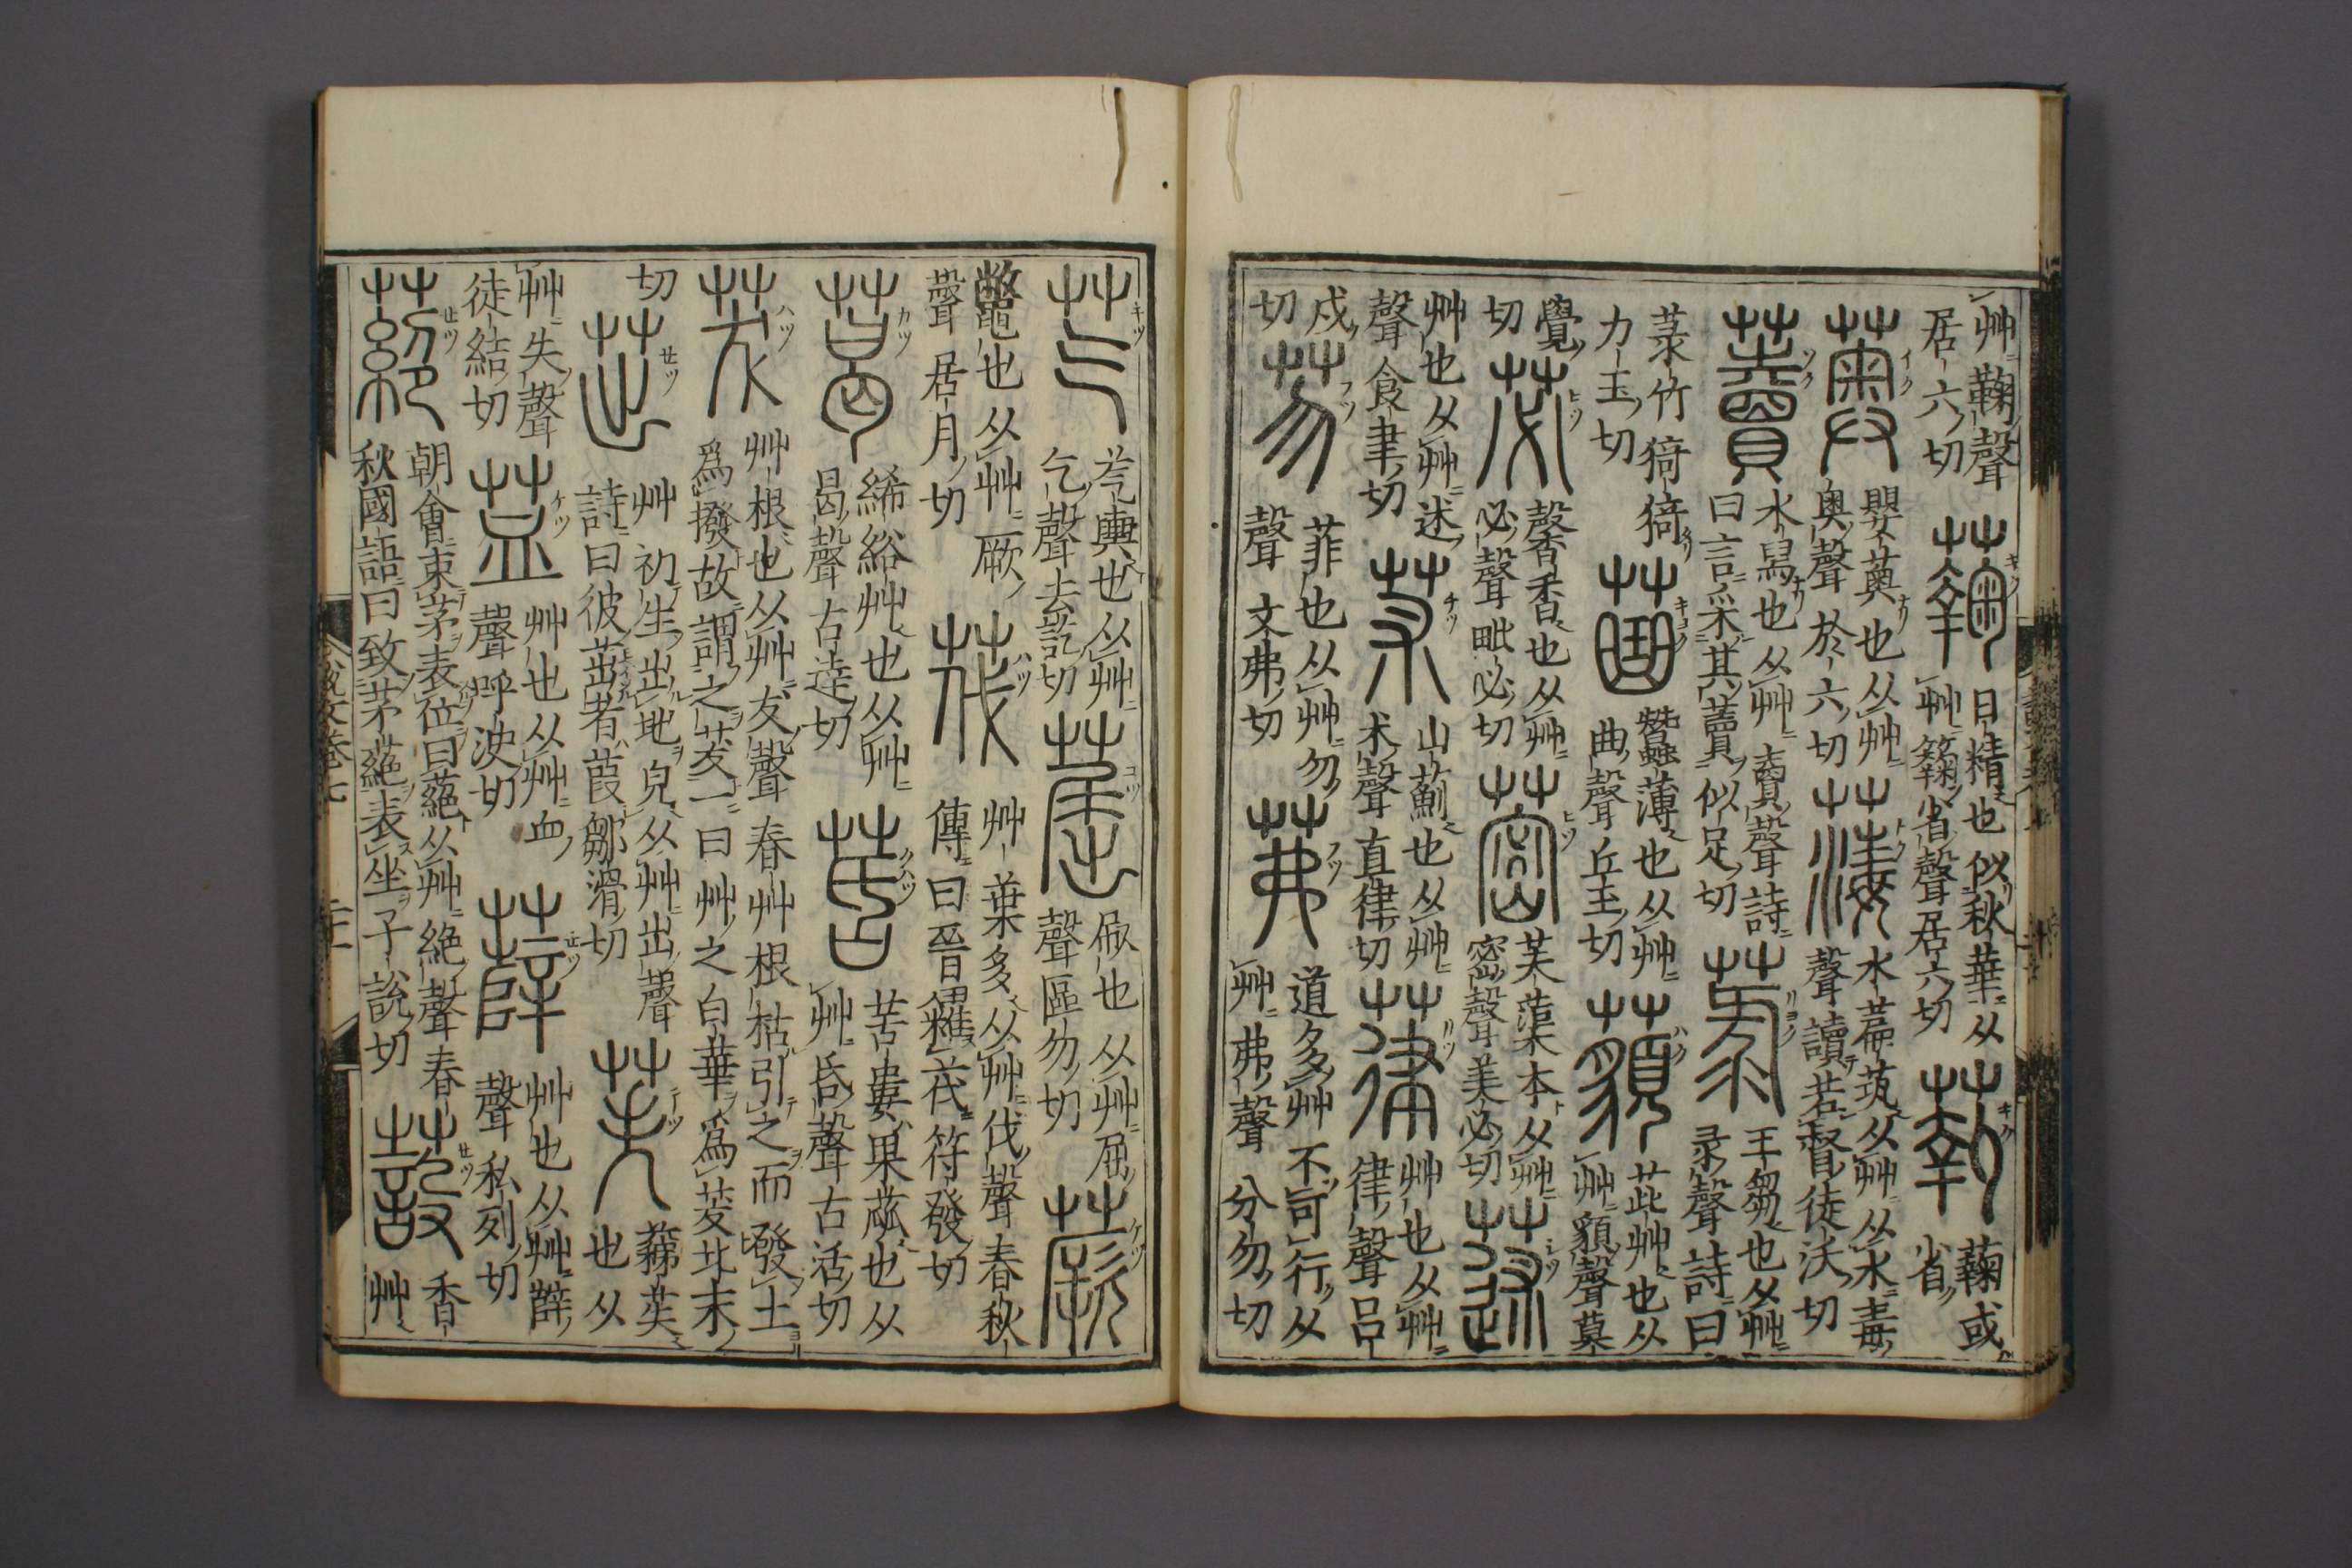 艸鞠聲居六切 蘜 日精也似秋華从艸𥷚省聲居六切 𦺤 蘜或省
薁 嬰薁也从艸奧聲於六切 𦼮 水萹茿从艸从水毒聲讀若督徒沃切
藚 水舄也从艸賣聲詩曰言采其藚似足切 菉 王芻也从艸录聲詩曰
菉竹猗猗力玉切 𦱊 蠶薄也从艸曲聲丘玉切 藐 茈艸也从艸貌聲莫
覺切 苾 馨香也从艸必聲毗必切 蔤 芙蕖本从艸密聲美必切 蒁
艸也从艸述聲食聿切 荗 山薊也从艸朮聲直律切 葎 艸也从艸律聲呂
戍切 芴 菲也从艸勿聲文弗切 茀 道多艸不可行从艸弗聲分勿切
芞 芞輿也从艸气聲去訖切 䓛 㕞也从艸屈聲區勿切 蕨
鼈也从艸厥聲居月切 茷 艸葉多从艸伐聲春秋傳曰晉糴茷符發切
葛 絺綌艸也从艸曷聲古達切 苦婁果蓏也从艸聲古活切
茇 艸根也从艸犮聲春艸根枯引之而發土爲撥故謂之茇一曰艸之白華爲茇北末
切 茁 艸初生出地皃从艸出聲詩曰彼茁者葭鄒滑切 苵 蕛苵也从
艸失聲徒結切 䒸 艸也从艸血聲呼決切 薛 艸也从艸辥聲私列切
蕝 朝會束茅表位曰蕝从艸絕聲春秋國語曰致茅蕝表坐子說切 蔎 香艸
說文卷七